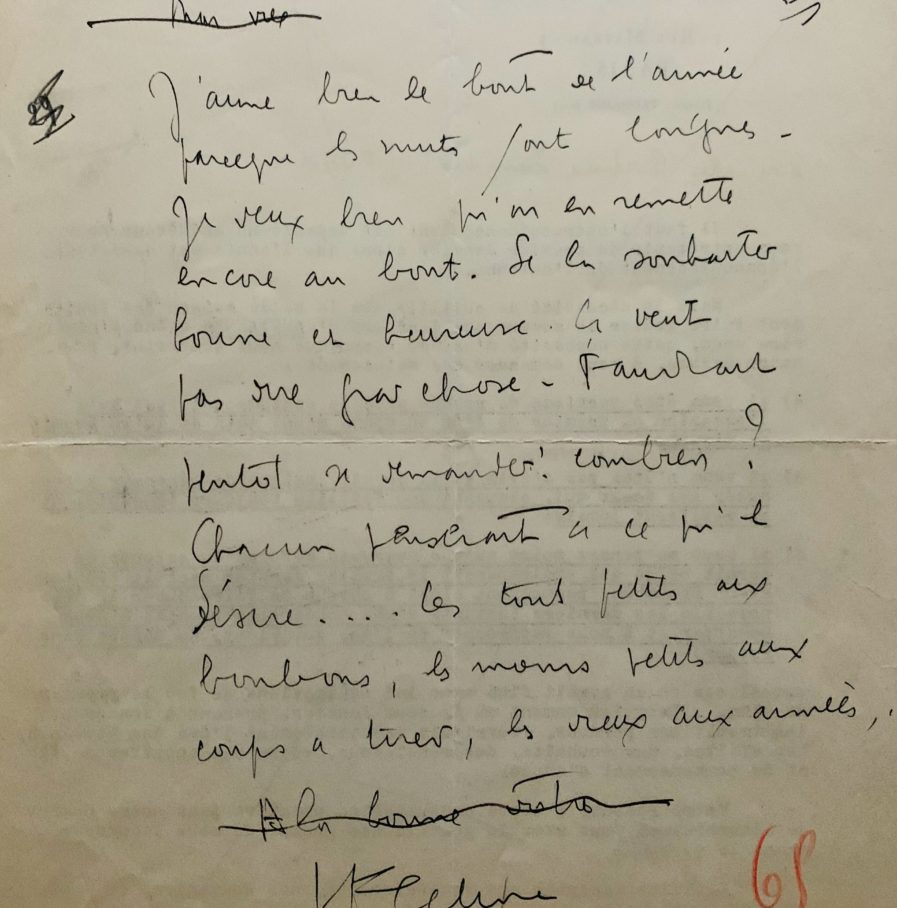 J'aime bien le bout de l'année
parceque les nuits sont longues -
Je veux bien qu'on en remette
encore au bout. Se la souhaiter
bonne et heureuse. Ça veut
pas dire grand chose - Faudrait
plutot se demander: combien ?
Chacun penserait à ce qu'il
désire..... les tout petits aux
bonbons, les moins petits aux
coups a tirer, les vieux aux années,.
A la bonne votre
LF Celine
68